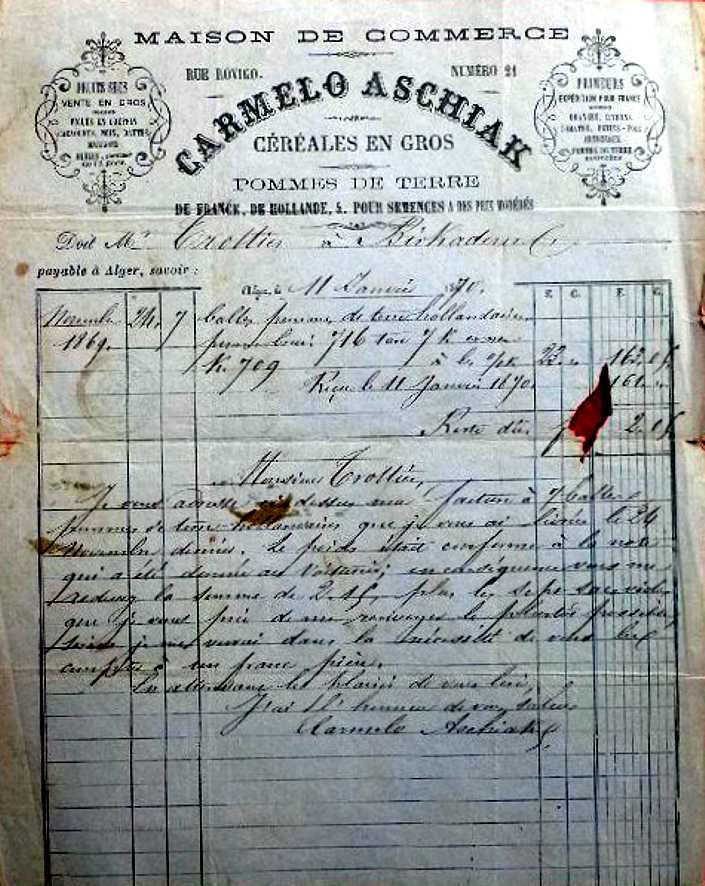 MAISON DE COMMERCE
RUE ROVIGO. NUMÉRO 21
CARMELO ASCHIAK
CÉRÉALES EN GROS
POMMES DE TERRE
DE FRANCE, DE HOLLANDE, &. POUR SEMENCES A DES PRIX MODÉRÉS
FRUITS SECS
VENTE EN GROS
PRIMEURS
EXPÉDITION POUR FRANCE
ORANGES, CITRONS
POMMES DE TERRE
Doit Mr Trottier à Birkadem
payable à Alger, savoir :
Alger, le 11 Janvier 1870.
F. C. F. C.
Novembre 24. 7 balles pommes de terre hollandaises
1869. 716 7 K
K. 709 à 22 162
Reçu le 11 Janvier 1870 161
Reste dû 2
Monsieur Trottier,
Je vous adresse ci dessus ma facture à 7 balles
pommes de terre hollandaises que je vous ai livrées le 24
Novembre dernier. Le poids était conforme à la note
qui a été donnée au voiturier; en conséquence vous me
la somme de plus les sept sacs vides
que je vous prie de me renvoyer le plus tôt possible,
je me verrai dans la nécessité de vous les
compter à un franc pièce.
En attendant le plaisir de vous lire,
J'ai l'honneur de vous saluer
Carmelo Aschiak